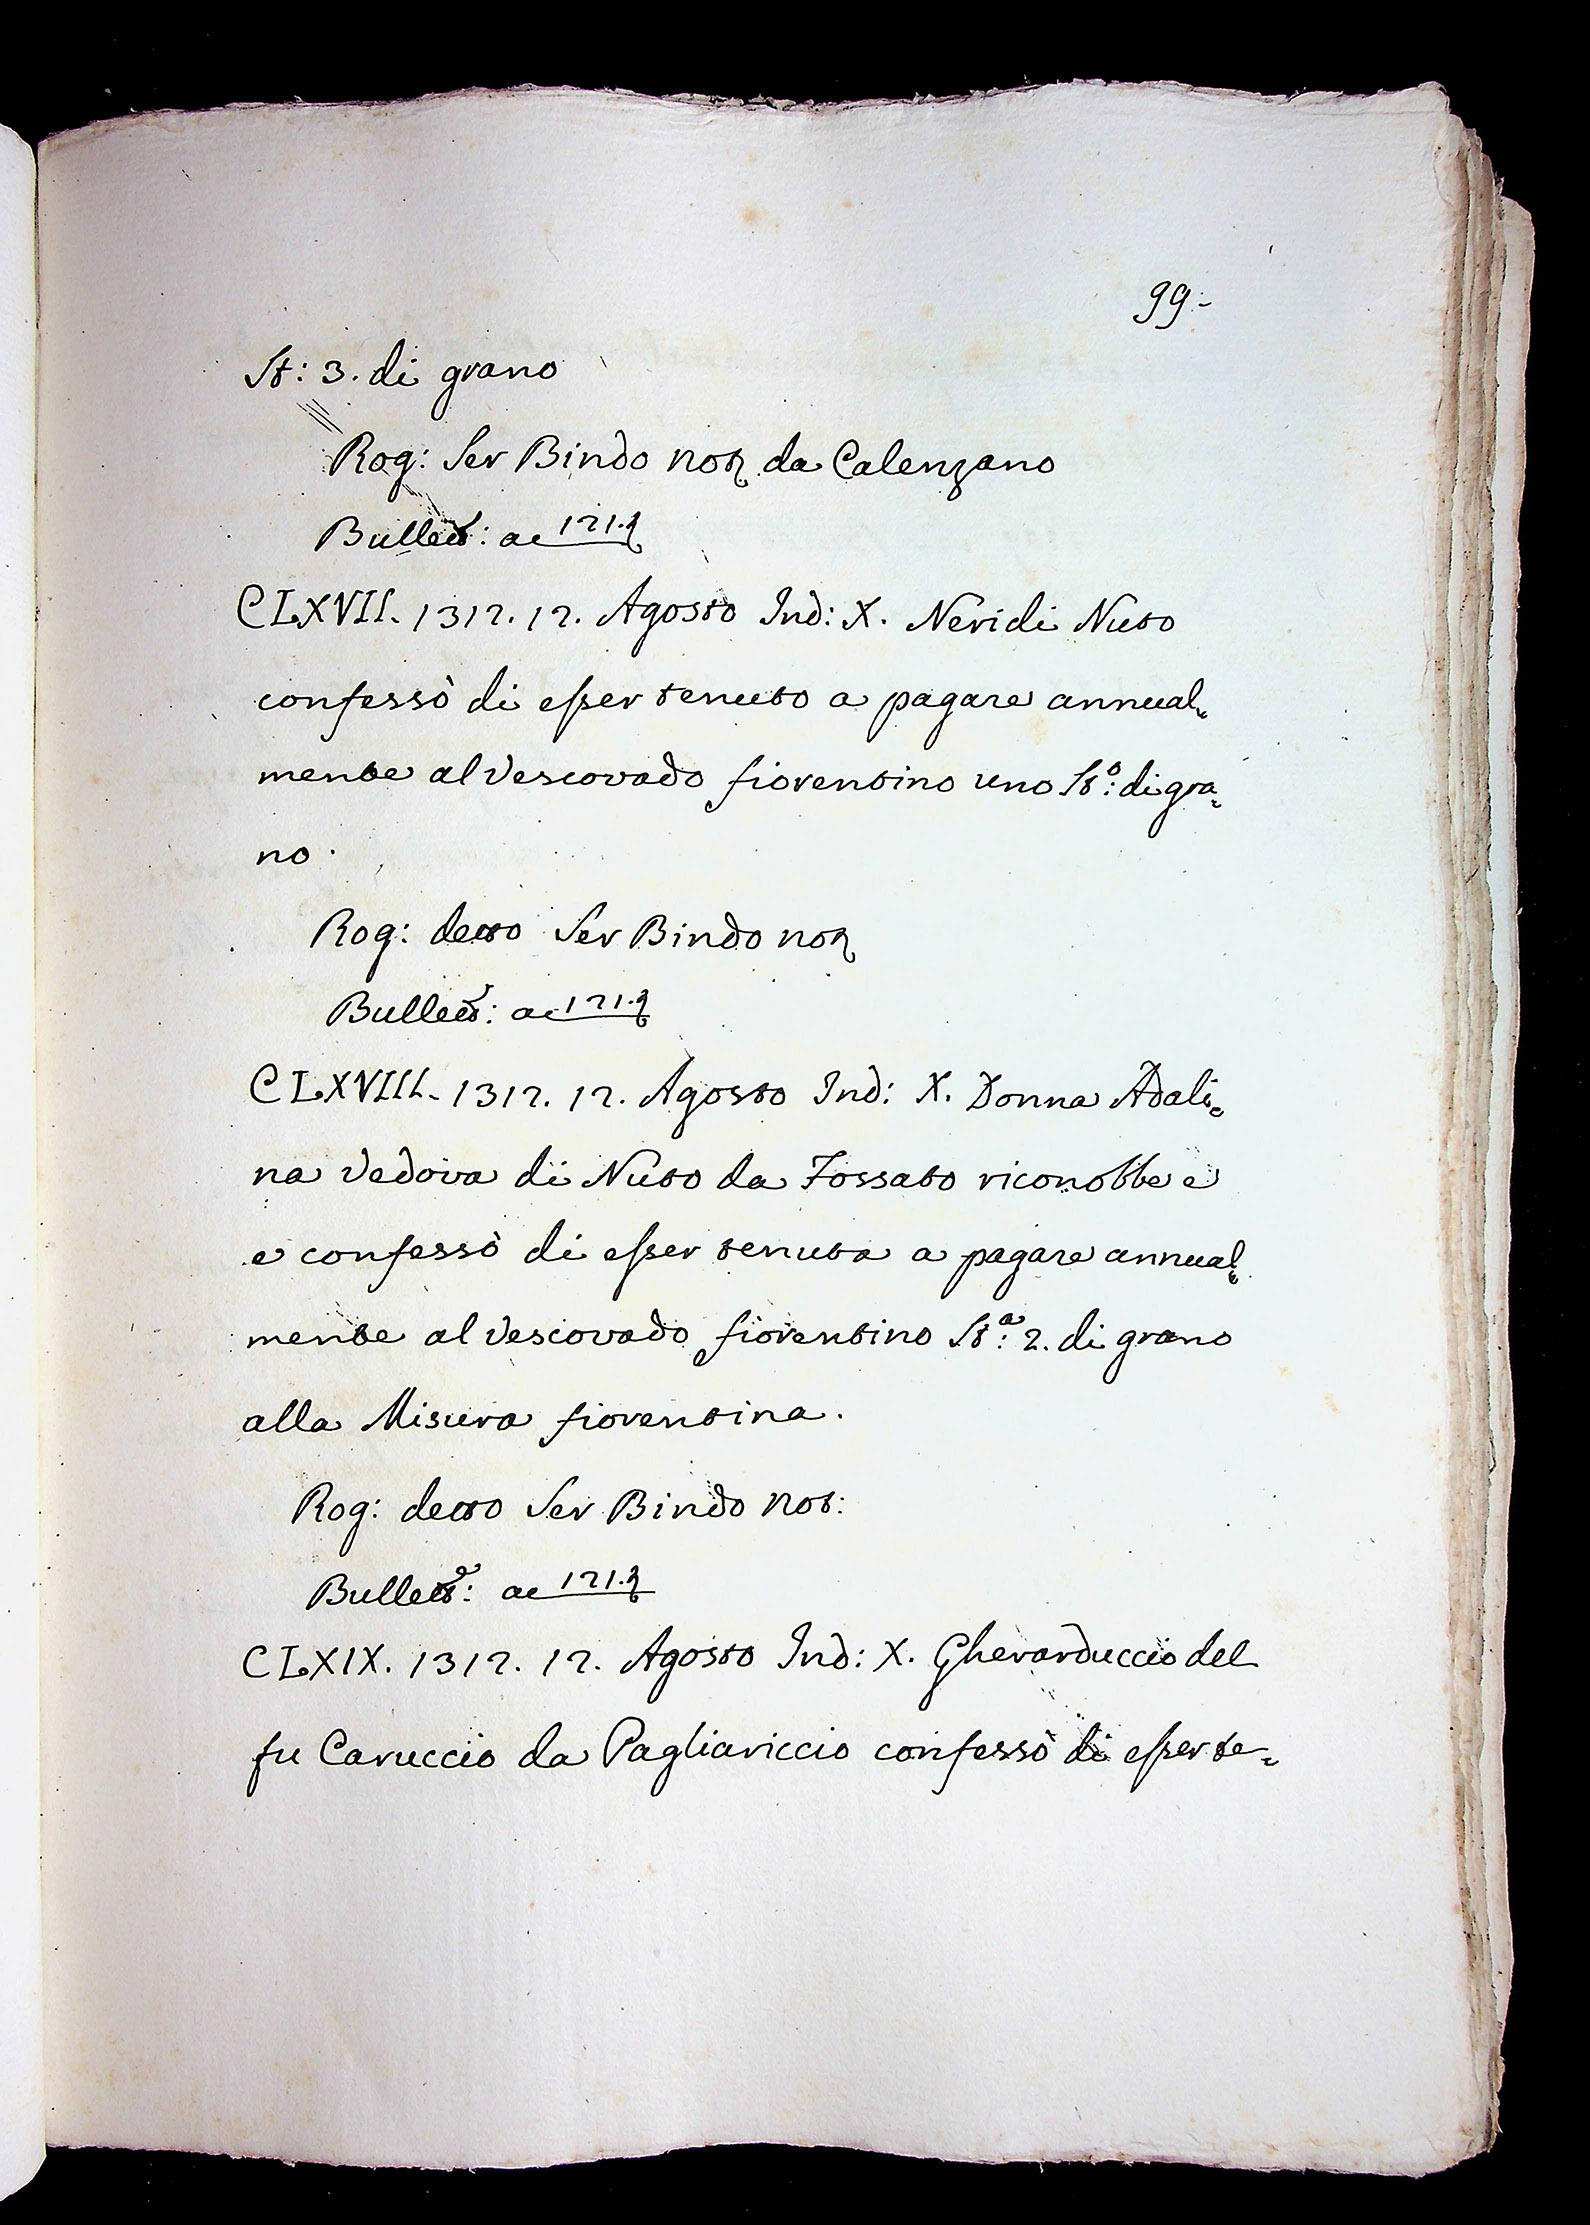 99.
St: 3. di grano
Rog: Ser Bindo not da Calenzano
Bullett: ac 121.
CLXVII. 1312. 12. Agosto Ind: X. Neri di Nuto
confessò di esser tenuto a pagare annual=
mente al Vescovado fiorentino uno St.º: di gra=
no.
Rog: detto Ser Bindo not
Bullett: ac 121.
CLXVIII. 1312. 12. Agosto Ind: X. Donna Adali=
na Vedova di Nuto da Fossato riconobbe e
e confessò di esser tenuta a pagare annual=
mente al Vescovado fiorentino St.ª: 2. di grano
alla Misura fiorentina.
Rog: detto Ser Bindo not:
Bullett: ac 121.
CLXIX. 1312. 12. Agosto Ind: X. Gherarduccio del
fu Caruccio da Pagliariccio confessò di esser te=